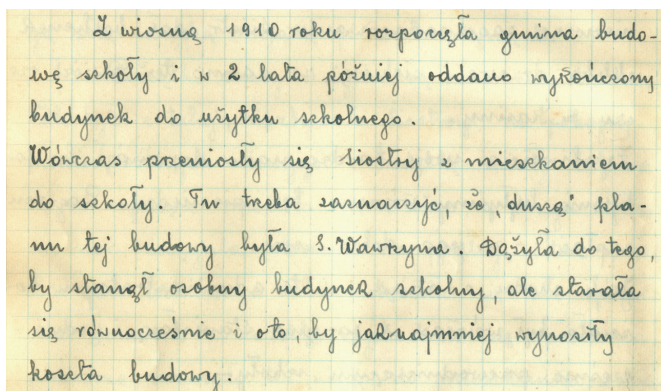 Z wiosną 1910 roku rozpoczęła gmina budo-
wę szkoły i w 2 lata później oddano wykończony
budynek do użytku szkolnego.
Wówczas przeniosły się Siostry z mieszkaniem
do szkoły. Tu trzeba zaznaczyć, że „duszą" pla-
nu tej budowy była S. Wawrzyna. Dążyła do tego,
by stanął osobny budynek szkolny, ale starała
się równocześnie i o to, by jaknajmniej wynosiły
koszta budowy.